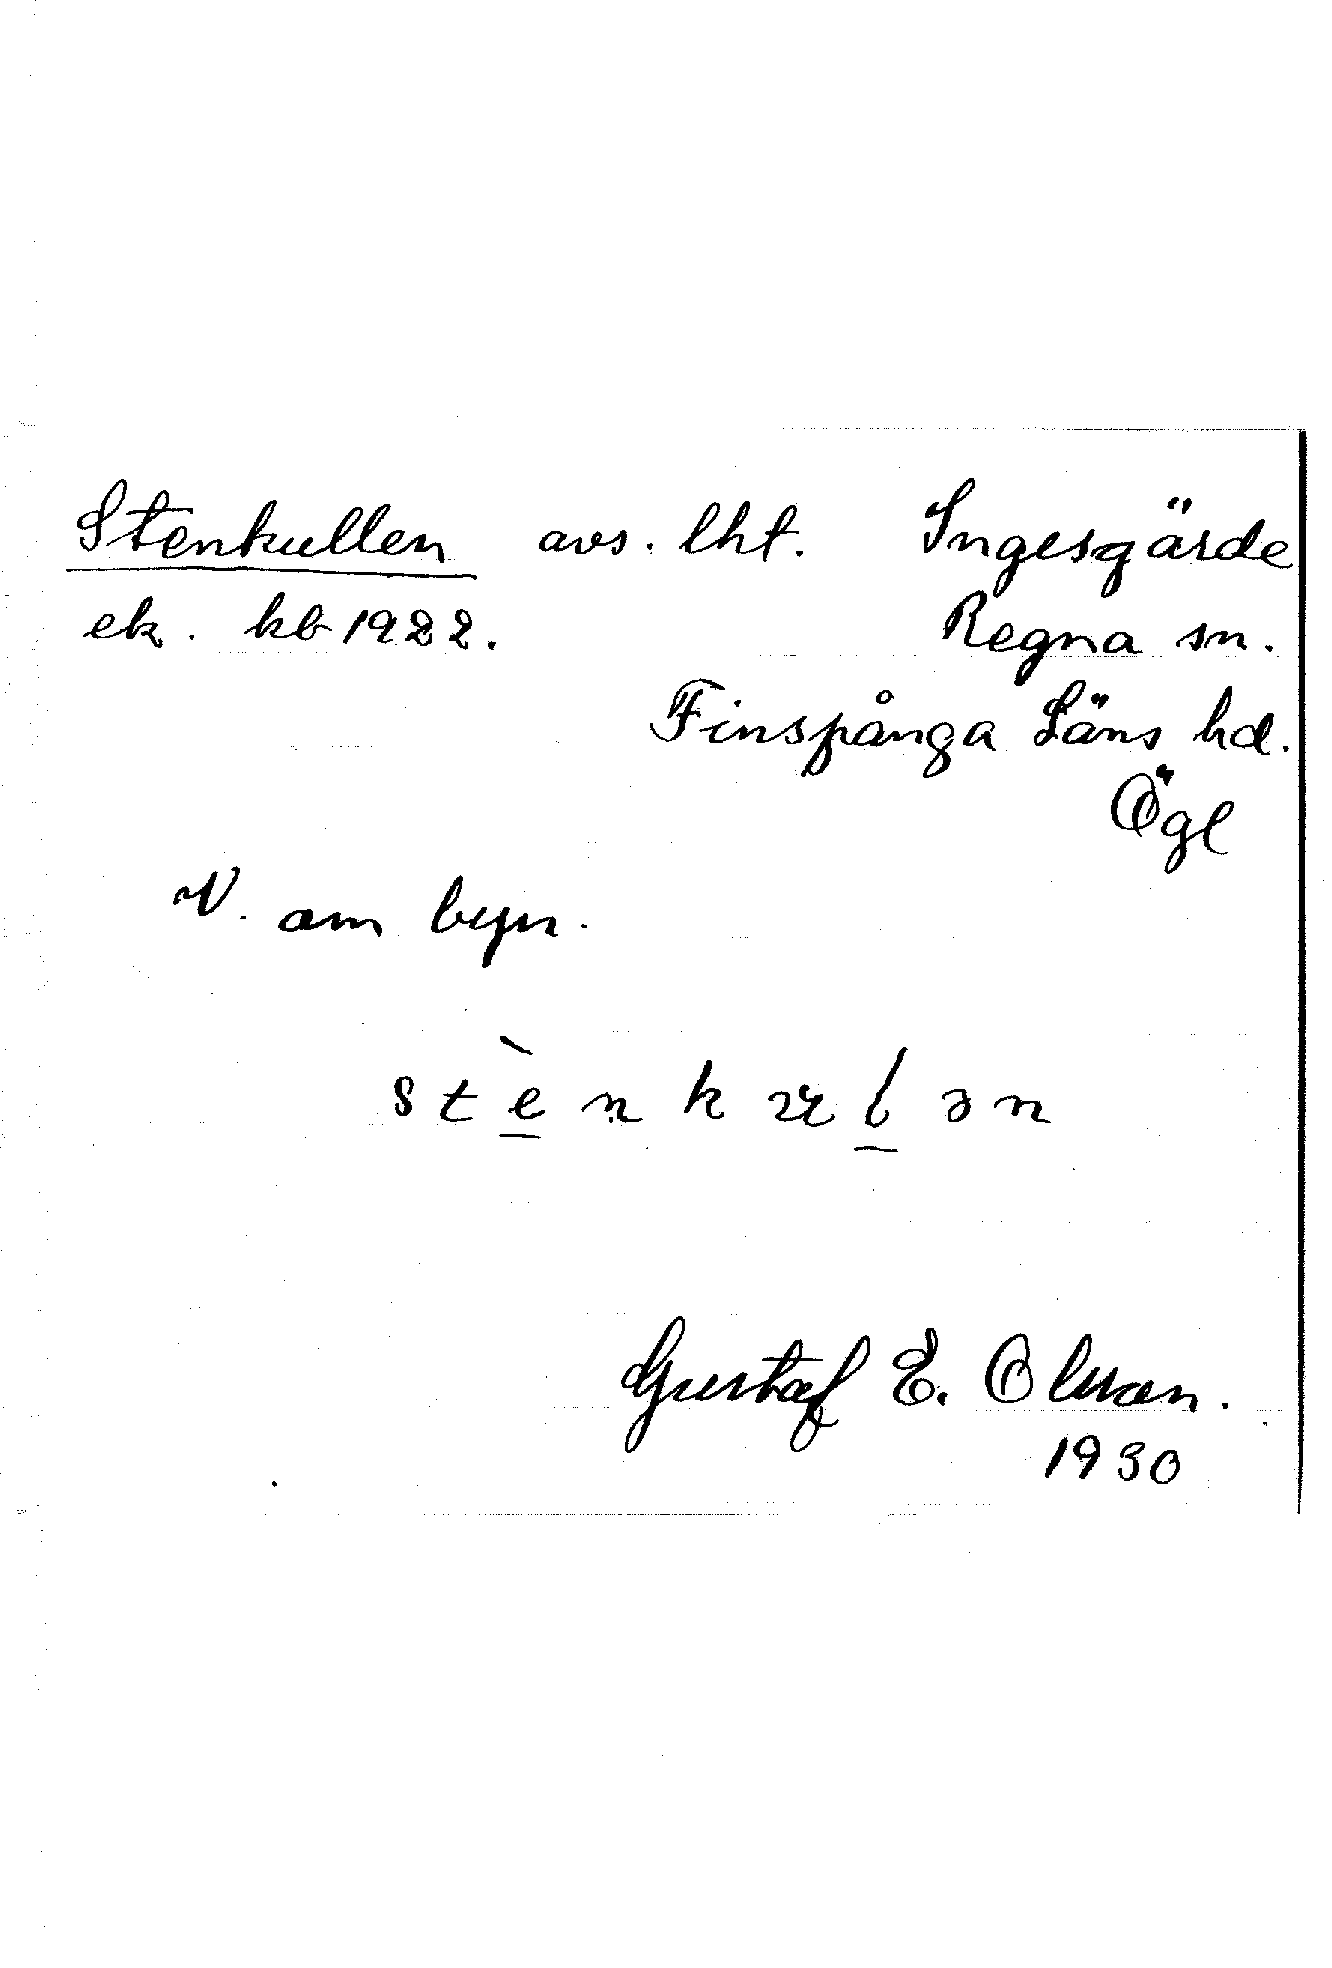 Stenkullen avs. lht. Ingesgärde
ek. kb 1922. Regna sn.
Finspånga Läns hd.
Ögl
V. om byn.
stènkulən
Gustaf E. Olsson.
1930